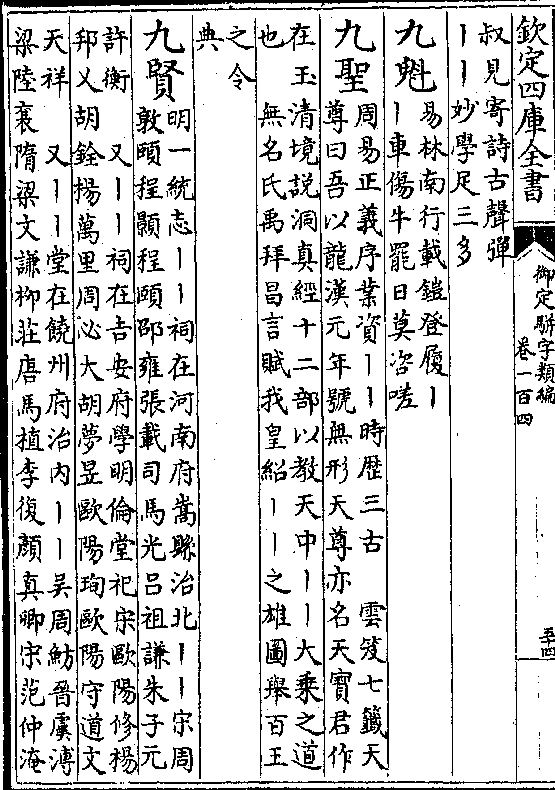 欽定四庫全書
御定駢字類編
卷一百四
五十四
叔見寄詩古聲彈
丨丨妙學足三多
九魁
易林南行載鎧登履丨
丨車傷牛罷日莫咨嗟
九聖
周易正義序業資丨丨時歷三古 雲笈七籤天
尊曰吾以龍漢元年號無形天尊亦名天寶君作
在玉清境說洞真經十二部以教天中丨丨大乘之道
也 無名氏禹拜昌言賦我皇紹丨丨之雄圖舉百王
之令
典
九賢
明一統志丨丨祠在河南府嵩縣治北丨丨宋周
敦頤程顥程頤邵雍張載司馬光呂祖謙朱子元
許衡 又丨丨祠在吉安府學明倫堂祀宋歐陽修楊
邦乂胡銓楊萬里周必大胡夢昱歐陽珣歐陽守道文
天祥 又丨丨堂在饒州府治內丨丨吳周魴晉虞溥
梁陸襄隋梁文謙柳莊唐馬植李復顏真卿宋范仲淹